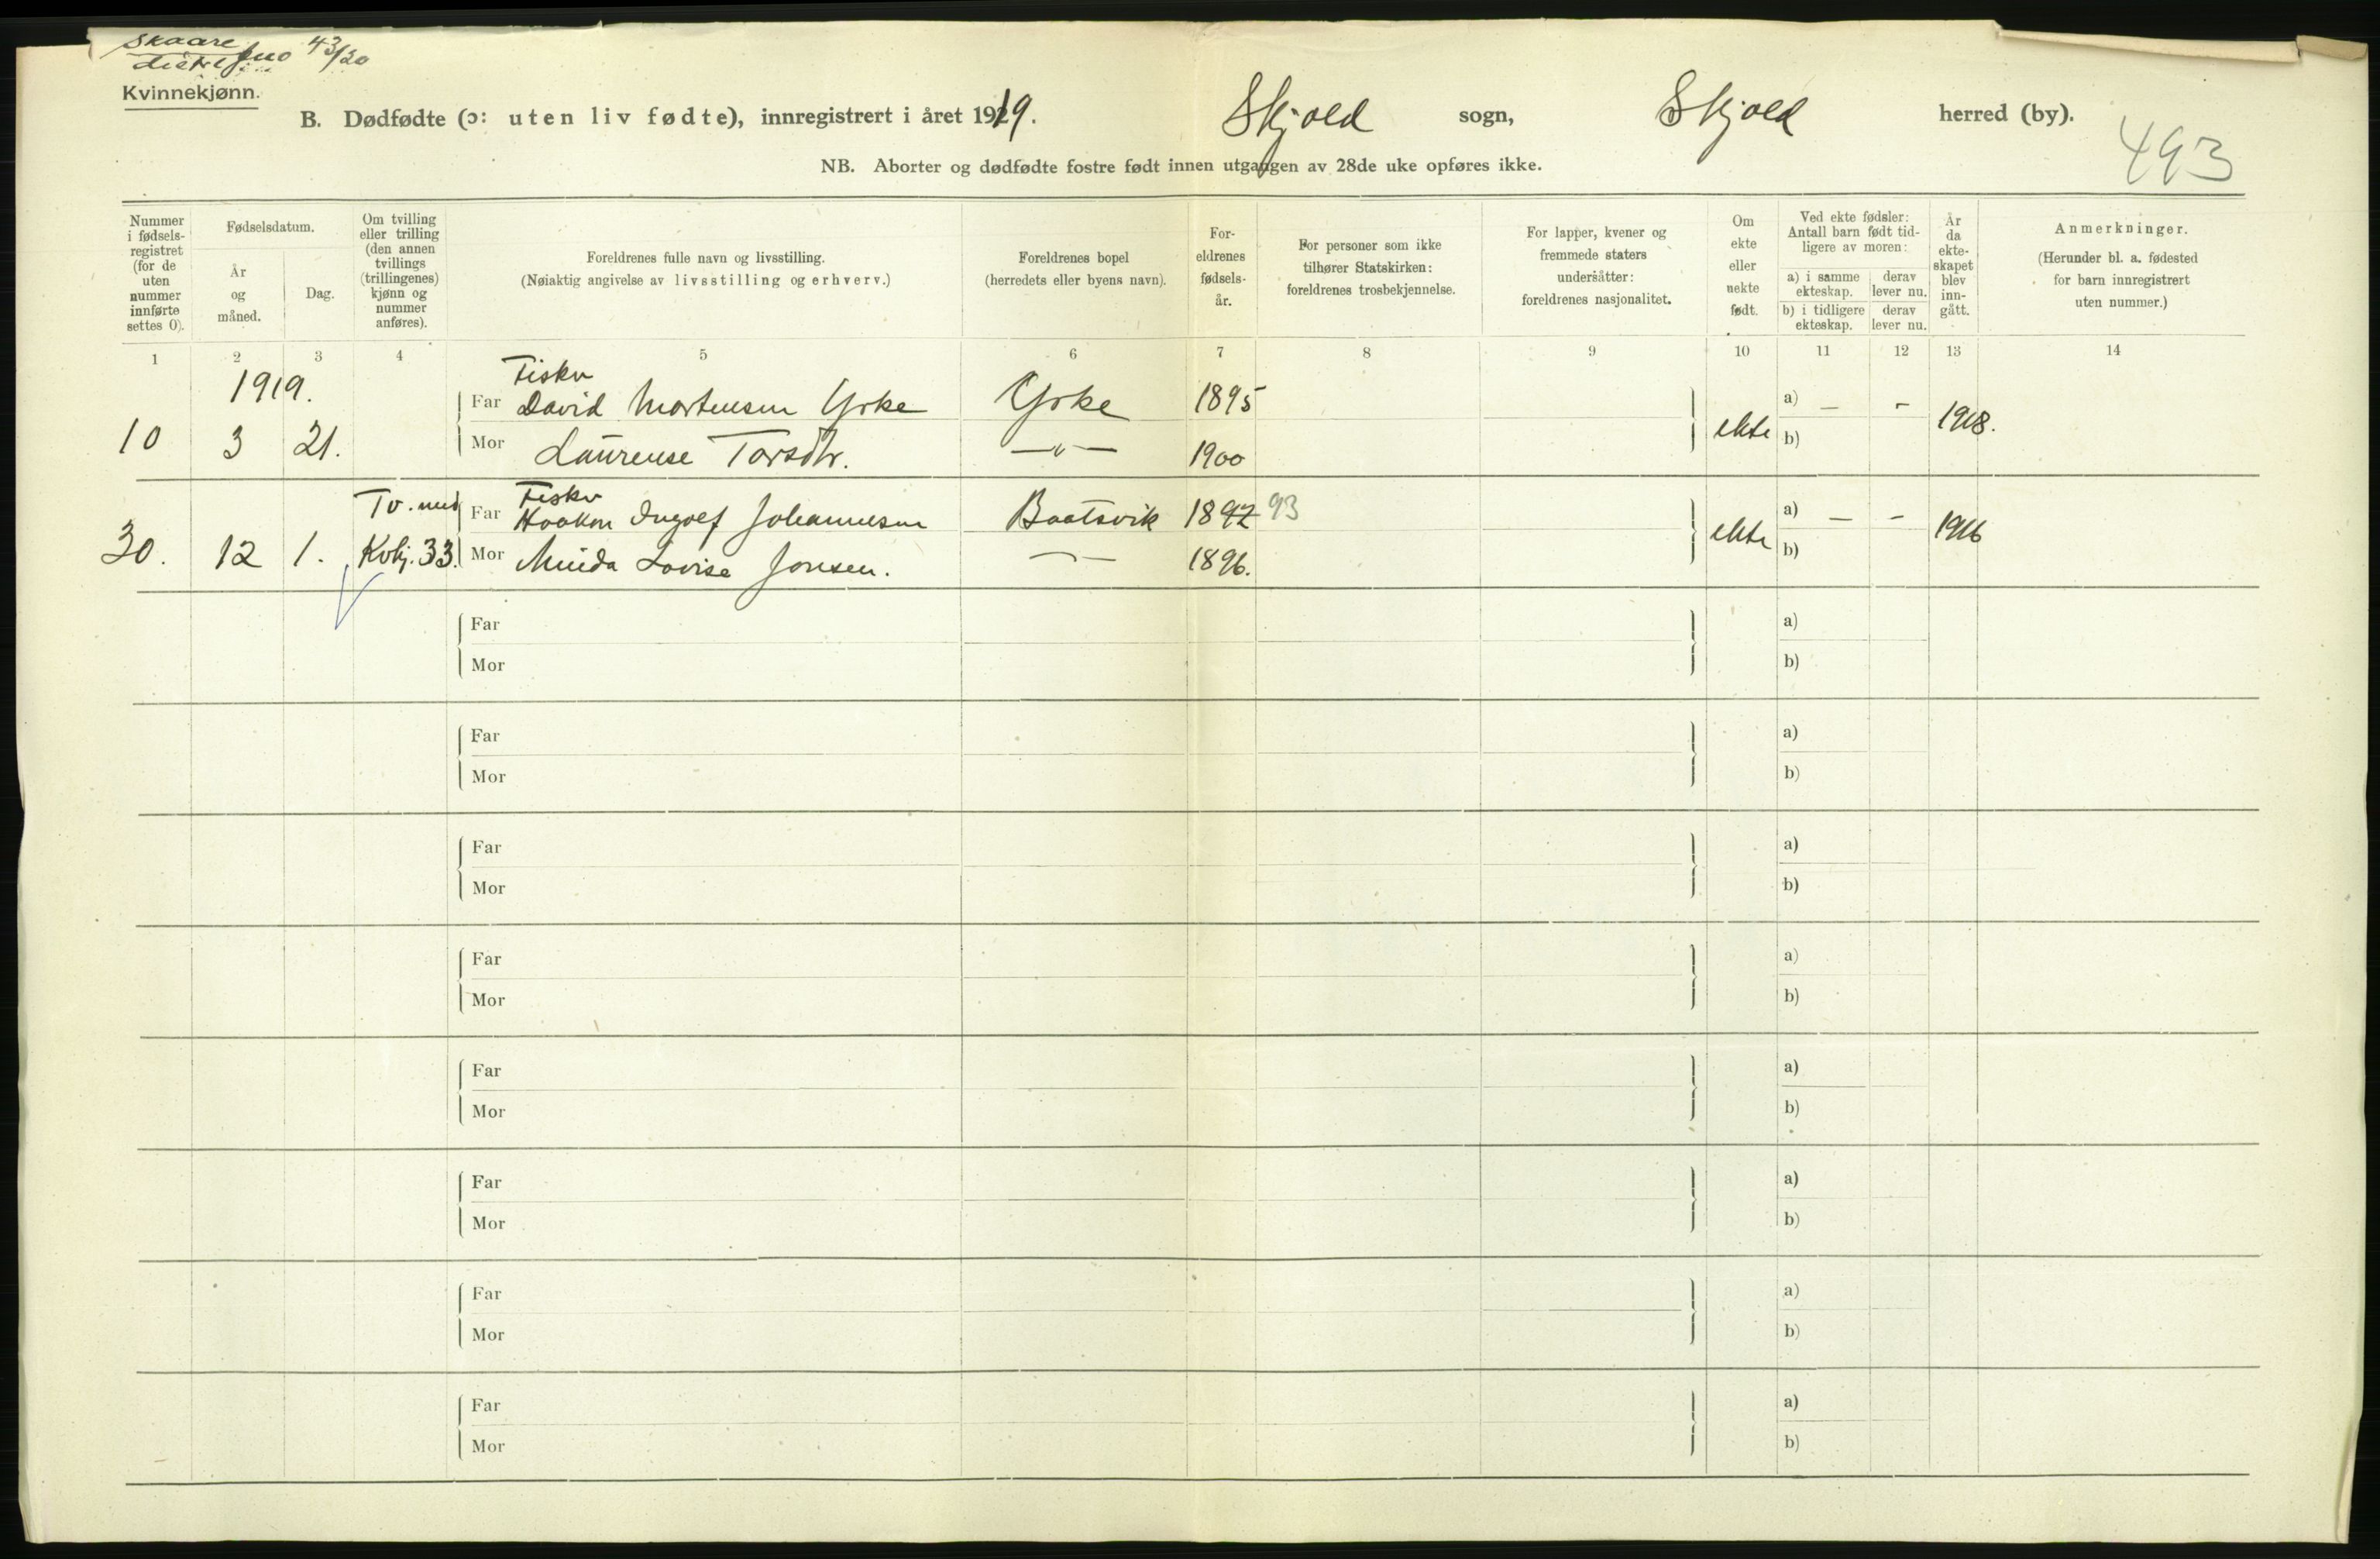 Skaare 43/20
Kvinnekjønn.
B. Dødfødte (ɔ: uten liv fødte), innregistrert i året 1919. Skjold sogn, Skjold herred (by).
493
NB. Aborter og dødfødte fostre født innen utgangen av 28de uke opføres ikke.
Nummer i fødsels-registret (for de uten nummer innførte settes 0).
Fødselsdatum.
År og måned.
Dag.
Om tvilling eller trilling (den annen tvillings (trillingenes) kjønn og nummer anføres).
Foreldrenes fulle navn og livsstilling.
(Nøiaktig angivelse av livsstilling og erhverv.)
Foreldrenes bopel
(herredets eller byens navn).
For-eldrenes fødsels-år.
For personer som ikke tilhører Statskirken: foreldrenes trosbekjennelse.
For lapper, kvener og fremmede staters undersåtter: foreldrenes nasjonalitet.
Om ekte eller uekte født.
Ved ekte fødsler: Antall barn født tid-ligere av moren:
a) i samme ekteskap.
derav lever nu.
b) i tidligere ekteskap.
derav lever nu.
År da ekte-skapet blev inn-gått.
Anmerkninger.
(Herunder bl. a. fødested for barn innregistrert uten nummer.)
1 2 3 4 5 6 7 8 9 10 11 12 13 14
1919.
Fisker
Far David Mortensen Yrke Yrke 1895 a) — -
10 3 21. ekte 1918.
Mor Laurense Torsdtr. —〃— 1900 b)
Tv. med Fisker
Far Haakon Ingolf Johannesen Baatsvik 1892 93 a) — -
30. 12 1. Kvkj. 33. ekte 1916
Mor Minda Lovise Jonsen. — 1896. b)
Far a)
Mor b)
Far a)
Mor b)
Far a)
Mor b)
Far a)
Mor b)
Far a)
Mor b)
Far a)
Mor b)
Far a)
Mor b)
Far a)
Mor b)